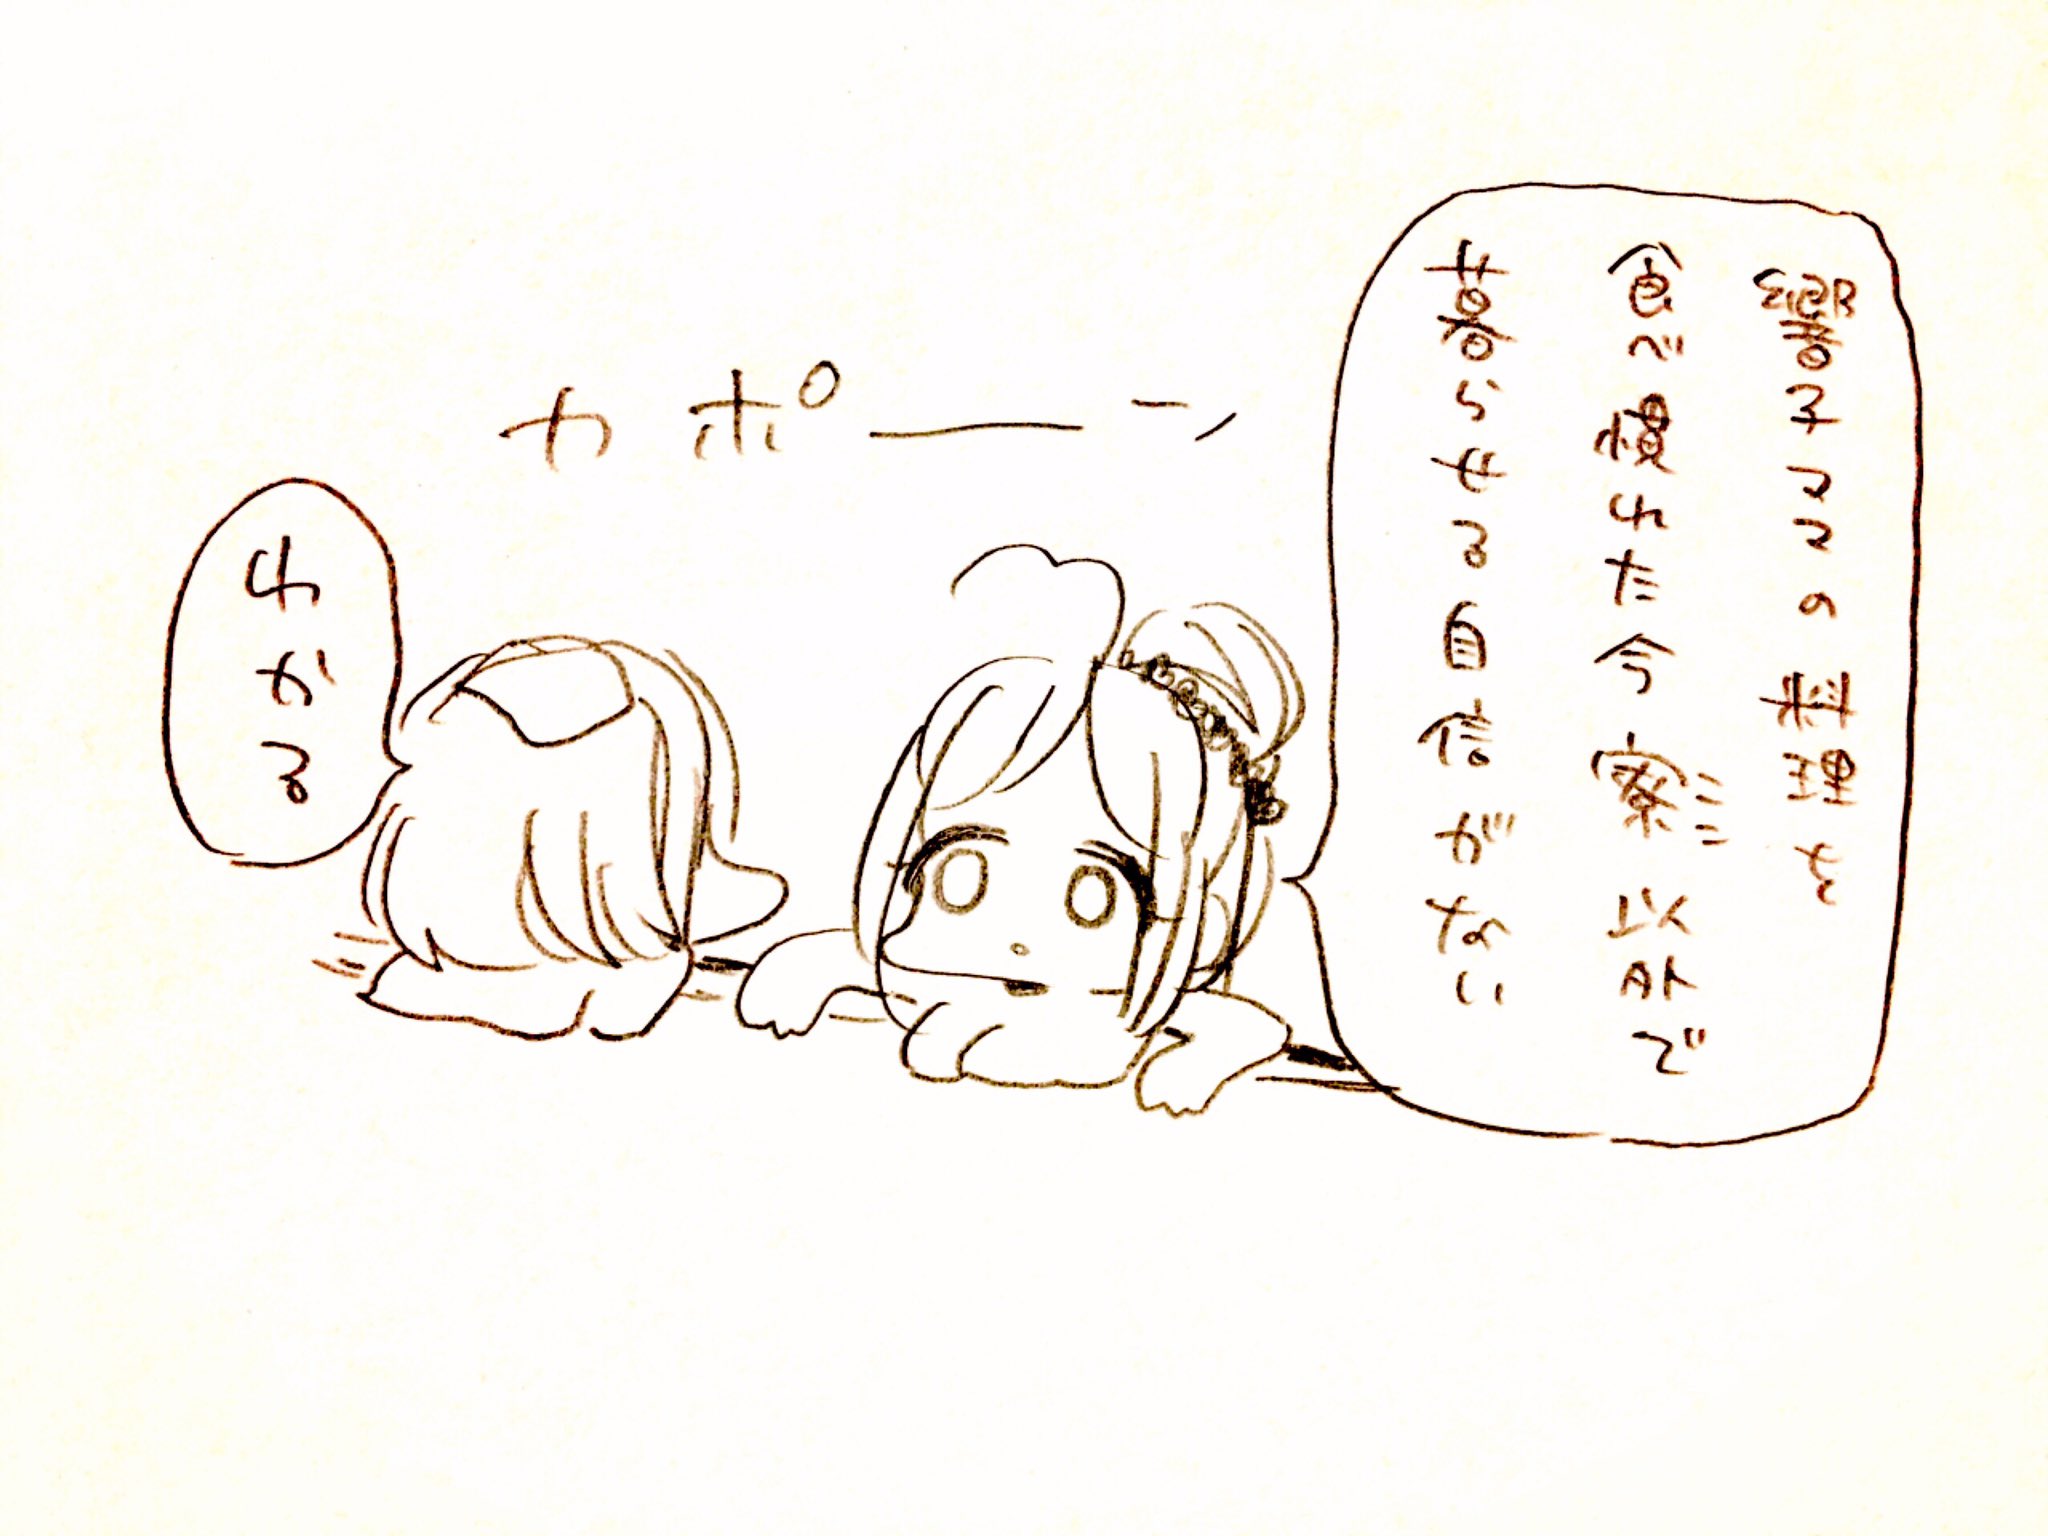 響子ママの料理を
食べ慣れた今寮ミニ以外で
暮らせる自信がない
カポーーン
わかる